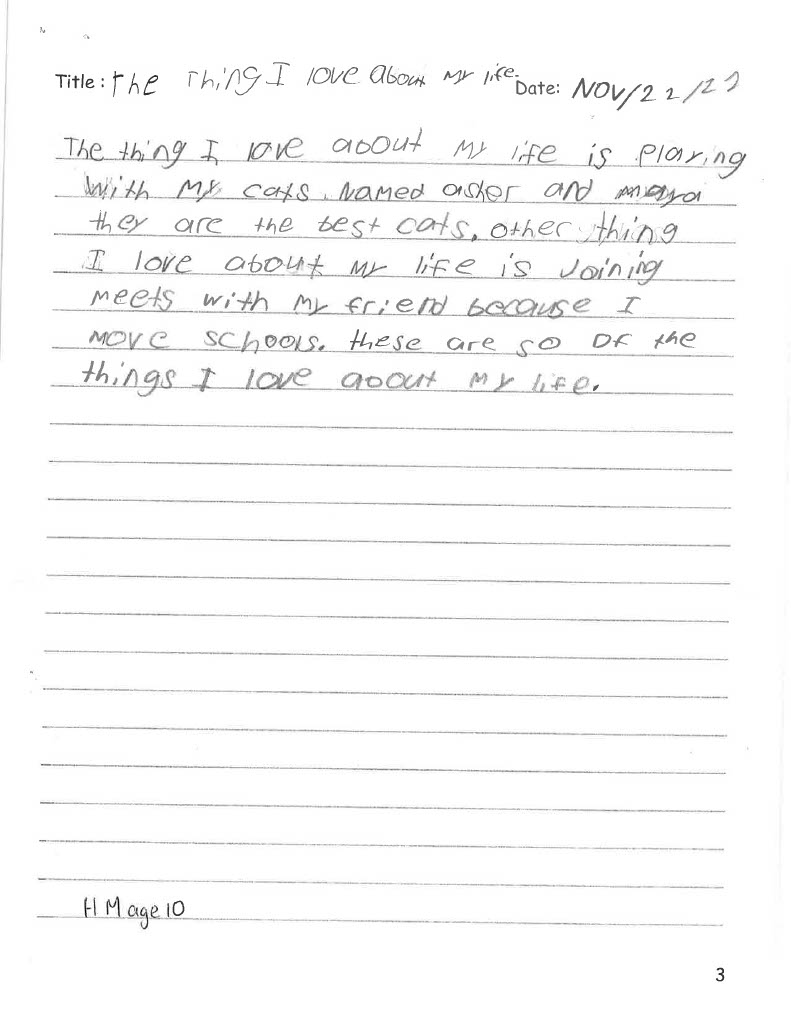 Title: The Thing I love about My life. Date: NOV/22/23
The thing I love about My life is Playing
With My cats. Named asher and maya
they are the best cats. other thing
I love about My life is Joining
Meets with My friend because I
Move schools. these are so OF the
things I love about My life.
H M age 10
3